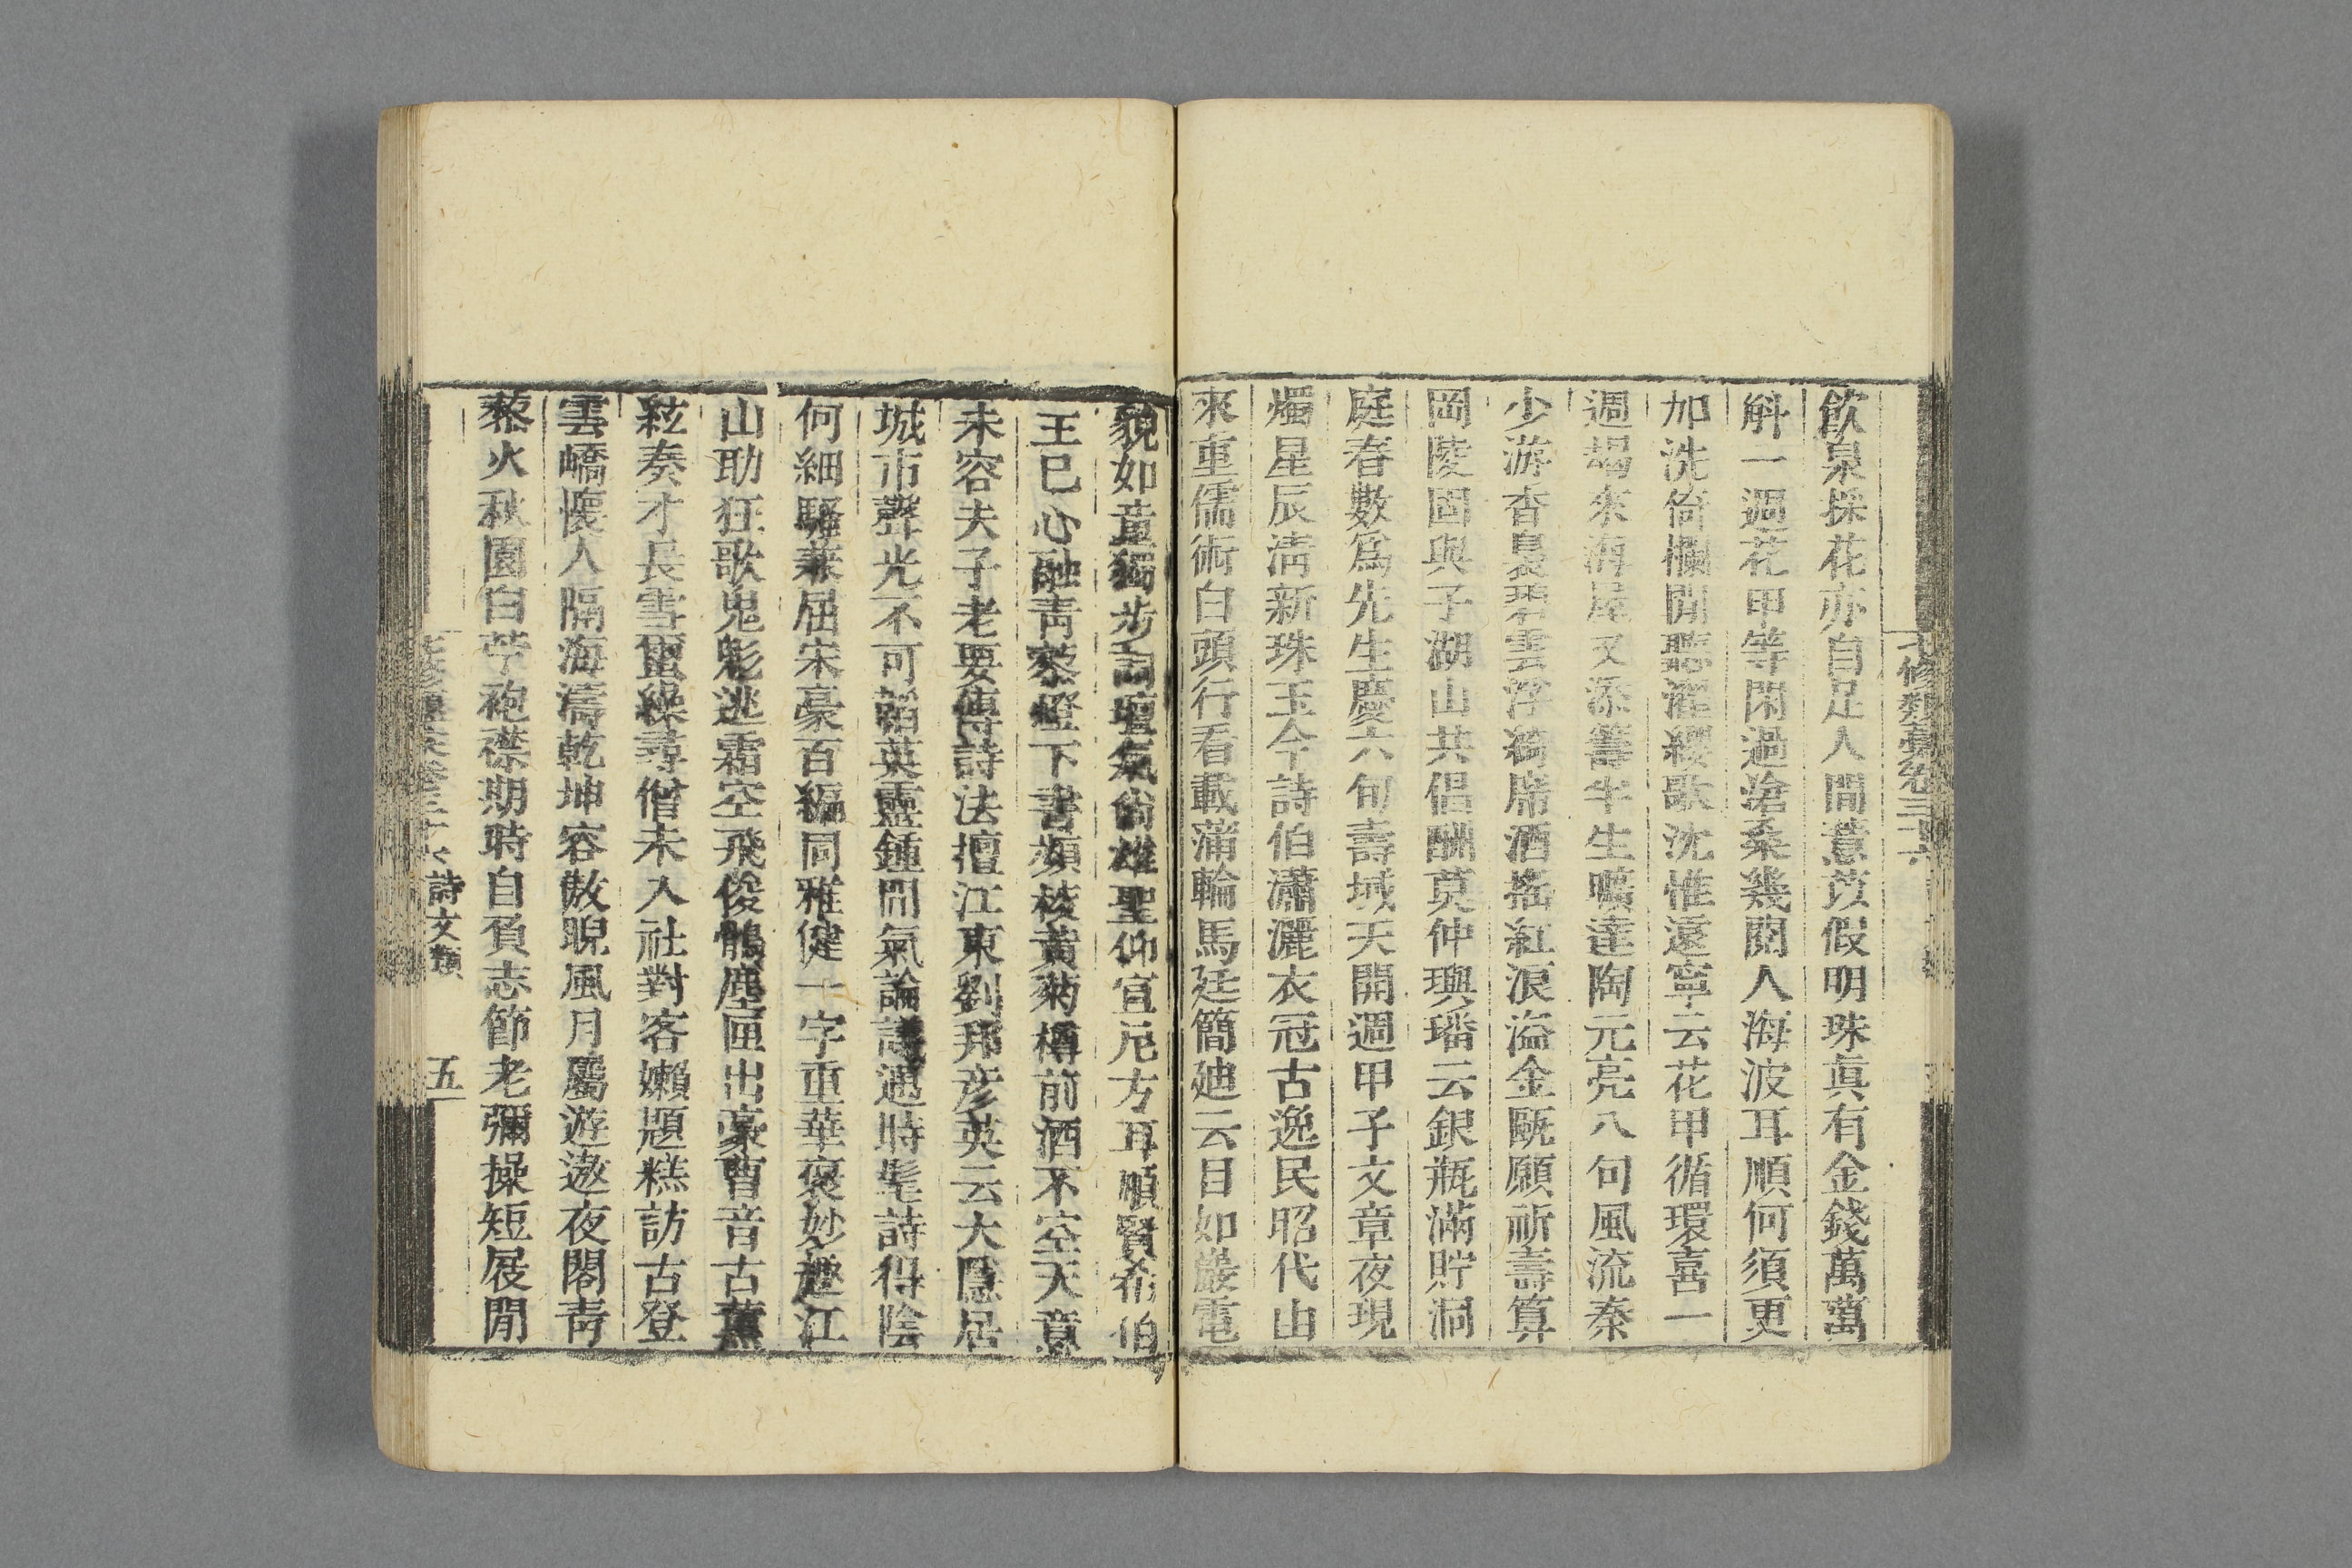 七修類藁卷三十六
飲泉採花亦自足人間薏苡假明珠真有金錢萬萬
斛一週花甲等閑過滄桑幾閱人海波耳順何須更
加洗倚欄閒聽濯纓歌沈惟遠寧云花甲循環喜一
週朅來海屋又添籌半生曠達陶元亮八句風流秦
少游香裊碧雲浮綺席酒搖紅浪溢金甌願祈壽算
岡陵固與子湖山共倡酬莫仲璵璠云銀瓶滿貯洞
庭春數爲先生慶六旬壽域天開週甲子文章夜現
燭星辰淸新珠玉今詩伯瀟灑衣冠古逸民昭代由
來重儒術白頭行看載蒲輪馬廷簡廸云目如巖電
貌如童獨步詞壇氣尙雄聖仰宣尼方耳順賢希伯
玉已心融靑藜燈下書頻校黃菊樽前酒不空天意
未容夫子老要傳詩法擅江東劉邦彥英云大隱居
城市聲光不可韜英靈鍾間氣論議邁時髦詩得陰
何細騷兼屈宋豪百編同雅健一字重華褒妙趣江
山助狂歌鬼魅逃霜空飛俊鶻塵匣出豪曹音古薰
絃奏才長雪蠒繰尋僧未入社對客嬾題糕訪古登
雲嶠懷人隔海濤乾坤容傲睨風月屬遊遨夜閣靑
藜火秋園白苧袍襟期時自負志節老彌操短屐閒
詩文類
五